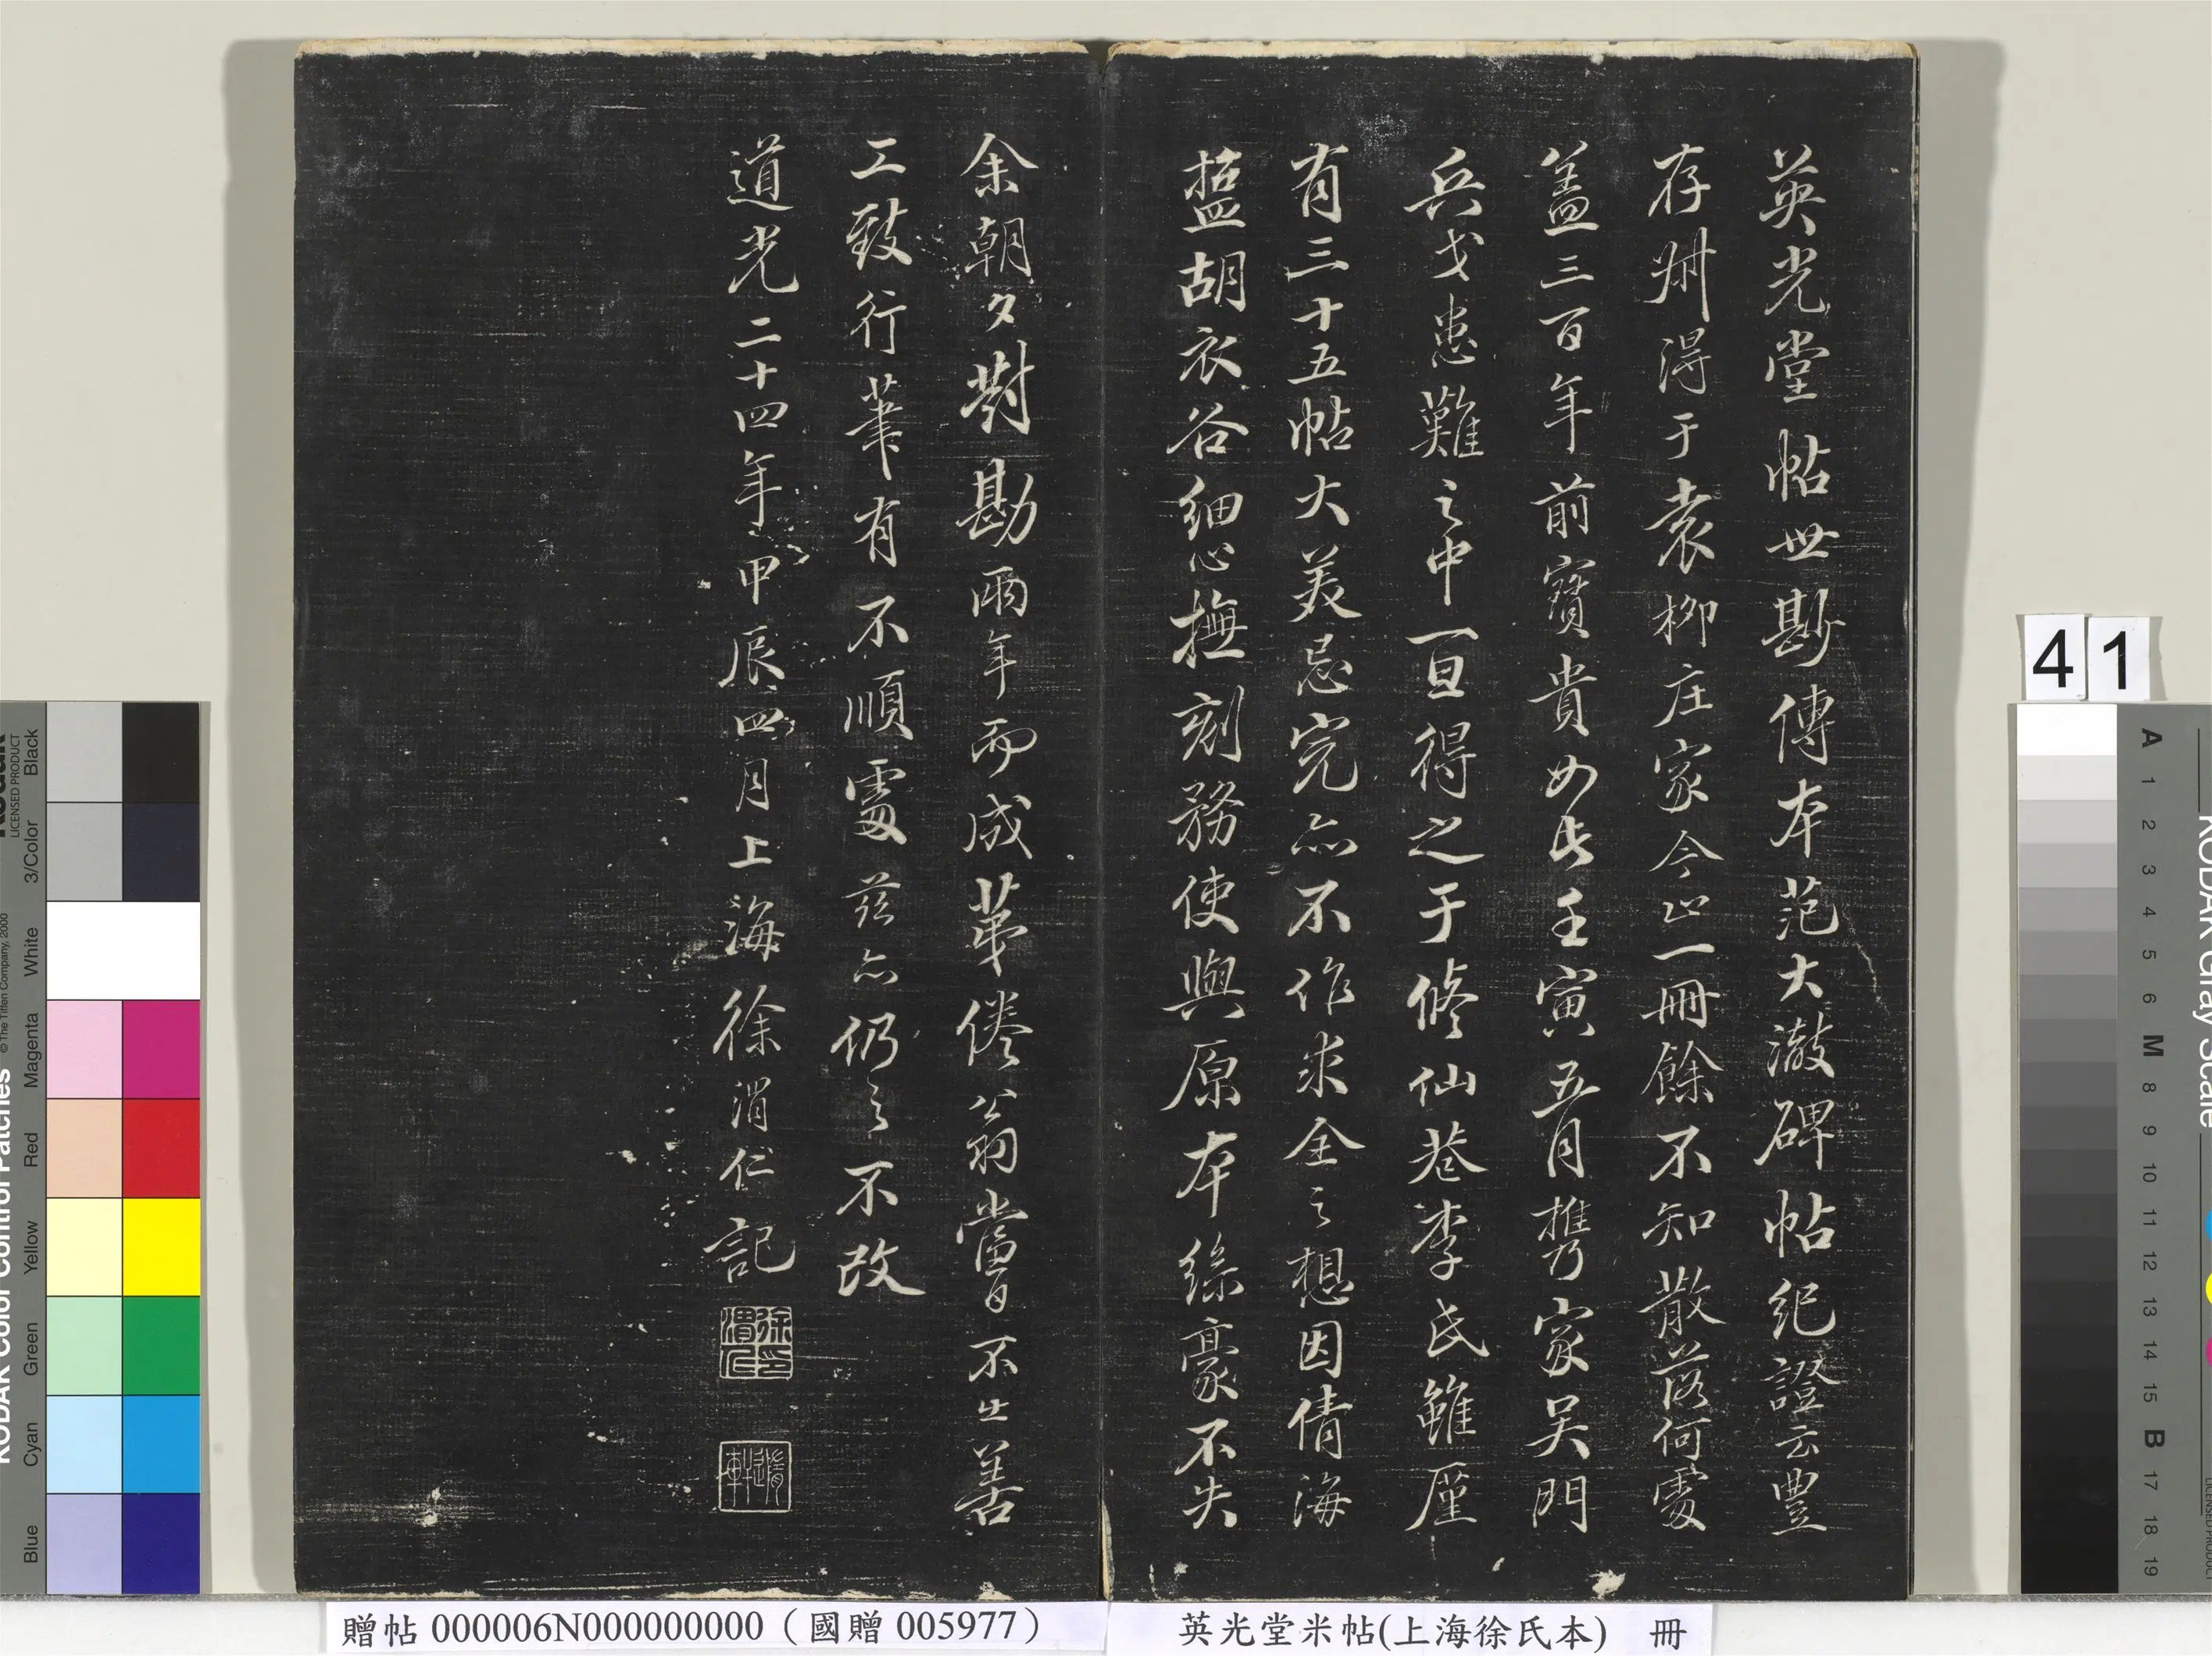 英光堂帖世尠傳本范大澈碑帖紀證云豐
存叔得于袁柳庄家今止一冊餘不知散落何處
盖三百年前寳貴如此壬寅五月攜家吴門
兵戈患難之中一旦得之于修仙巷李氏雖厪
有三十五帖大美忌完亦不作求全之想因倩海
盬胡衣谷細心撫刻務使與原本絲豪不失
余朝夕對勘兩年而成苐倦翁當日不出善
工致行筆有不順處茲亦仍之不改
道光二十四年甲辰四月上海徐渭仁記
徐渭仁印
隨軒
41
贈帖 000006N000000000（國贈 005977）
英光堂米帖(上海徐氏本) 冊
KODAK Color Control Patches
© The Tiffen Company, 2000
LICENSED PRODUCT
Blue
Cyan
Green
Yellow
Red
Magenta
White
3/Color
Black
KODAK Gray Scale
A 1 2 3 4 5 6 M 8 9 10 11 12 13 14 15 B 17 18 19